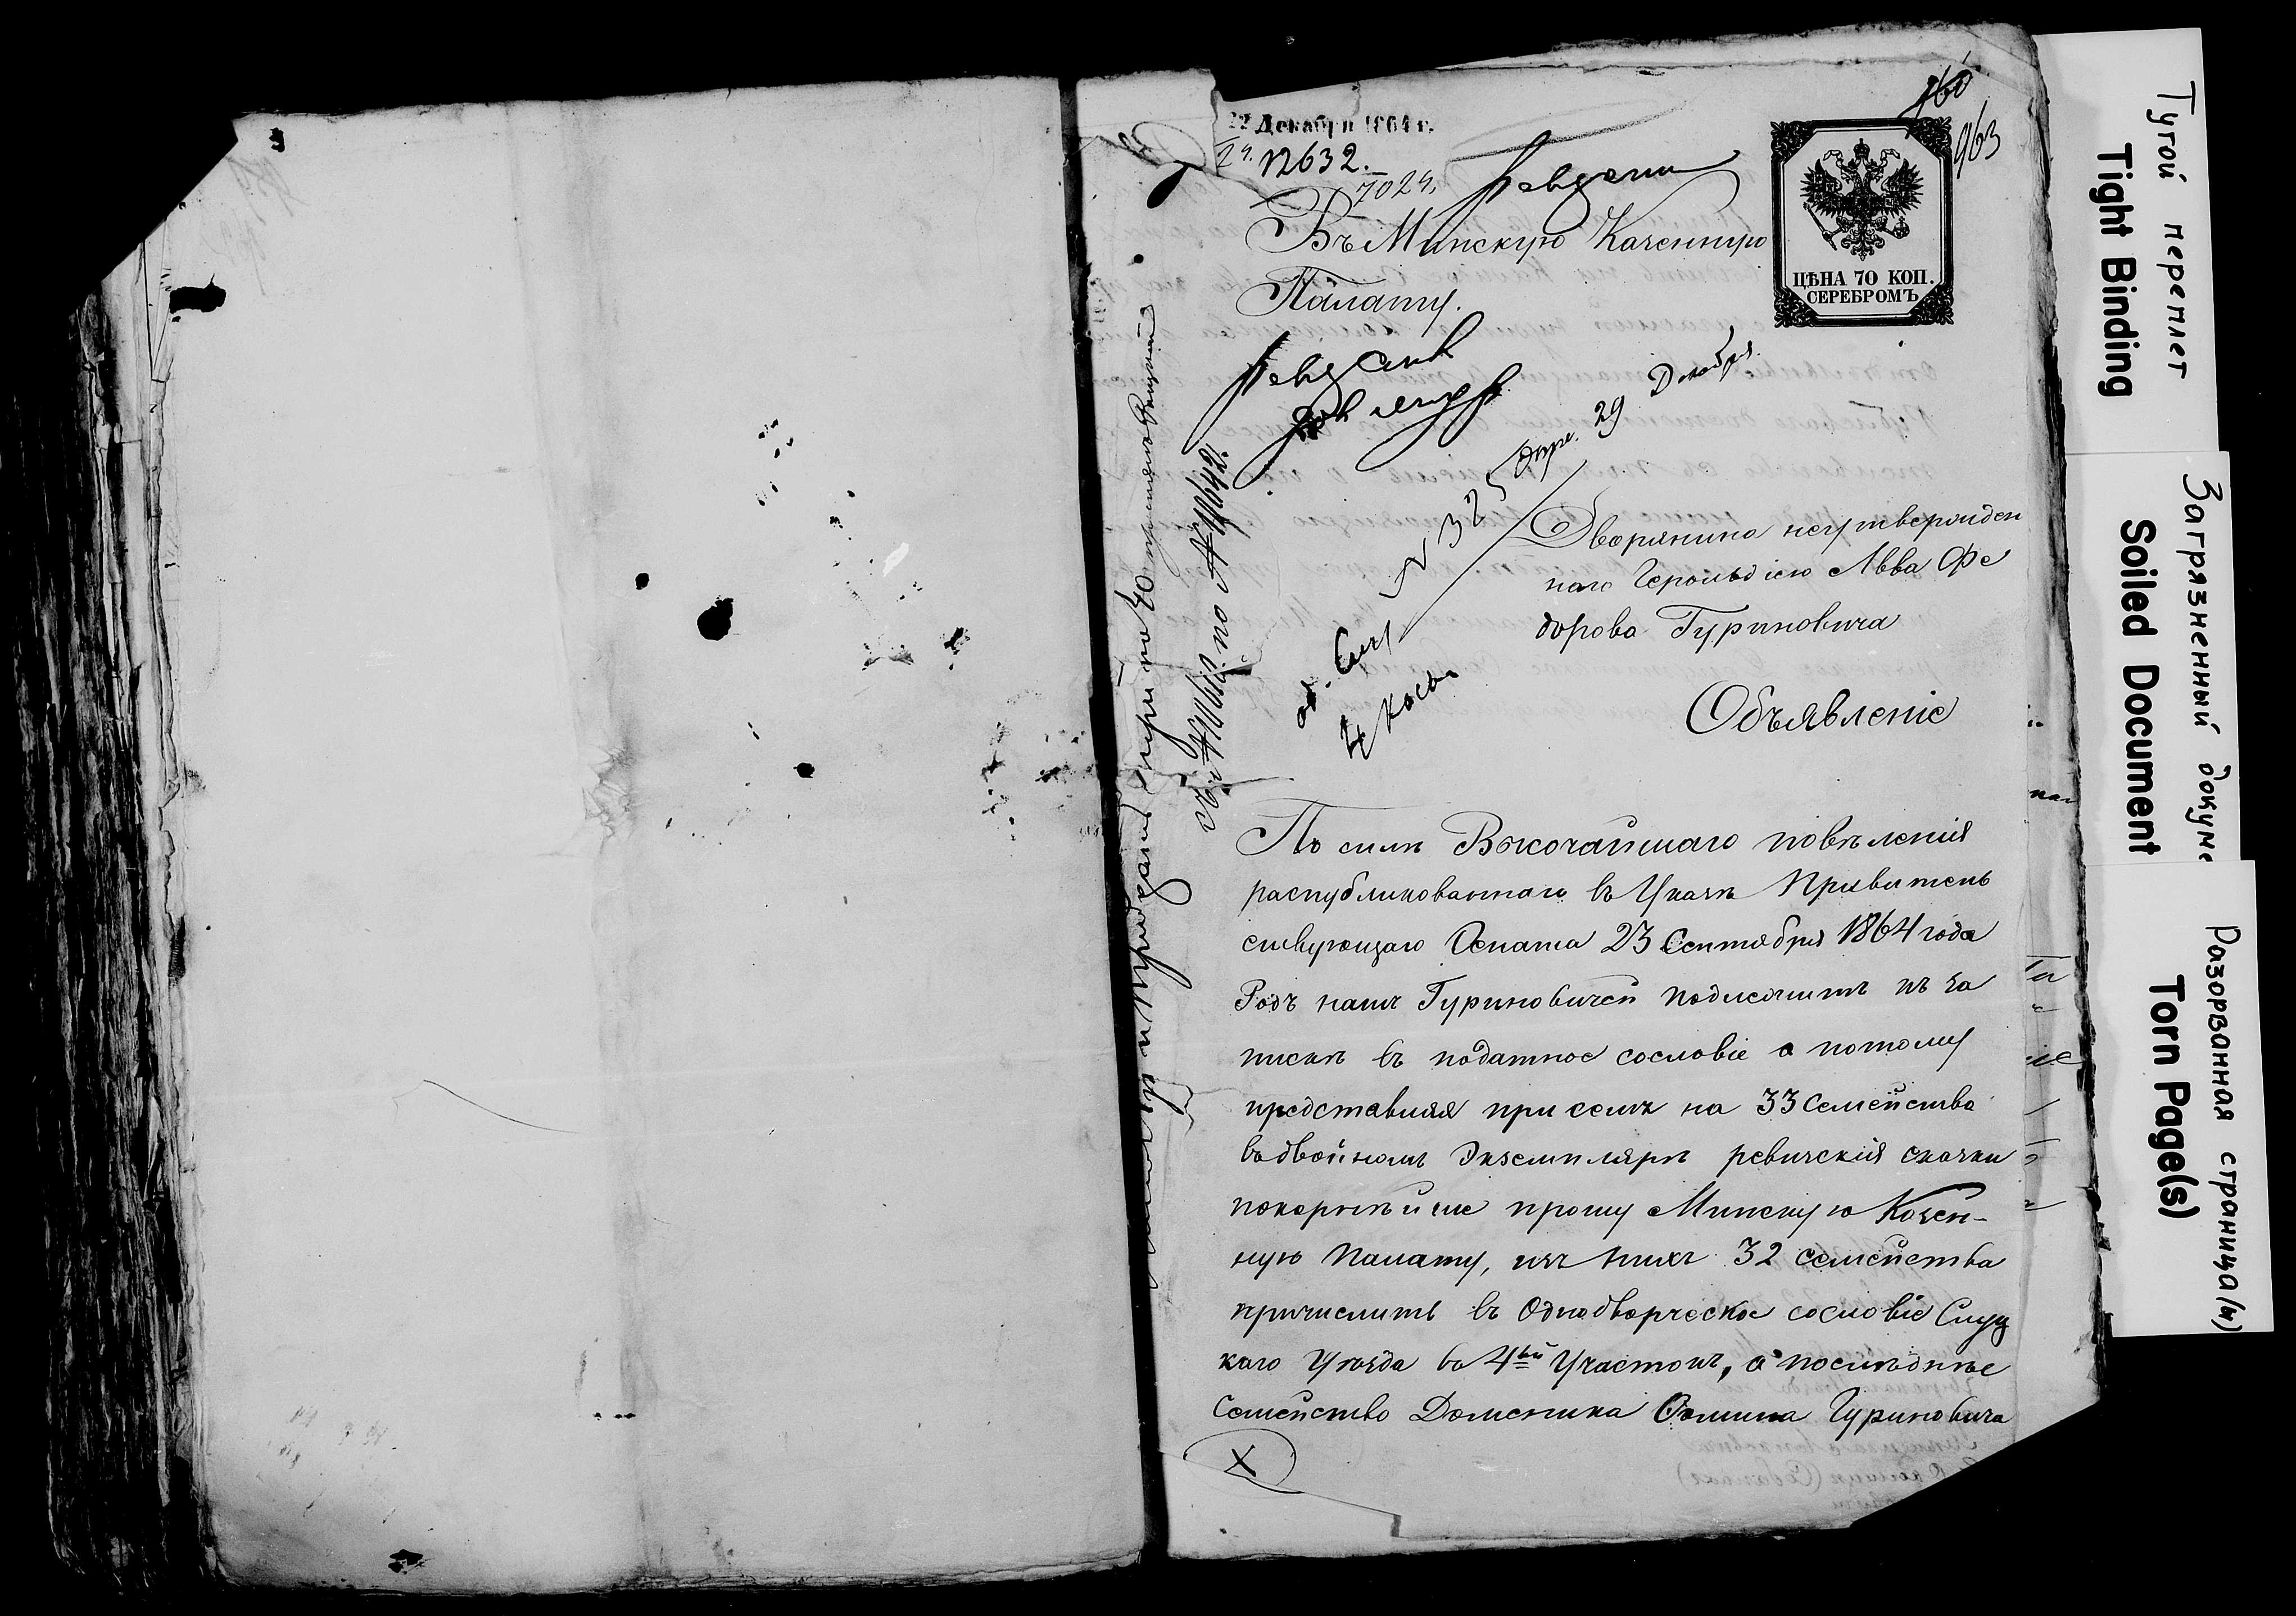 22 Декабря 1864 г.
2 ч. № 12632.
7024.
960
963
Въ Минскую Казенную
Палату.
ЦѢНА 70 КОП.
СЕРЕБРОМЪ
№ 325
29 Декабря
Дворянина неутвержден
наго Герольдіею Льва Фе
дорова Гуриновича
Объявленіе
По силѣ Высочайшаго повѣленія
распубликованнаго въ Указѣ Правитель
ствующаго Сената 23 Сентября 1864 года
Родъ нашъ Гуриновичей подлежитъ къ за
пискѣ въ податное сословіе а потому
представляя при семъ на 33 Семейства
въ двойномъ Экземплярѣ ревизскія сказки
покорнѣйше прошу Минскую Казен-
ную Палату, изъ нихъ 32 семейства
причислить въ Однодворческое сословіе Слуц
каго Уѣзда во 4ый Участокъ, а послѣднѣе
Семейство Доменика Гуриновича
X
Тугой переплет
Tight Binding
Загрязненный докуме
Soiled Document
Разорванная страница(ы)
Torn Page(s)